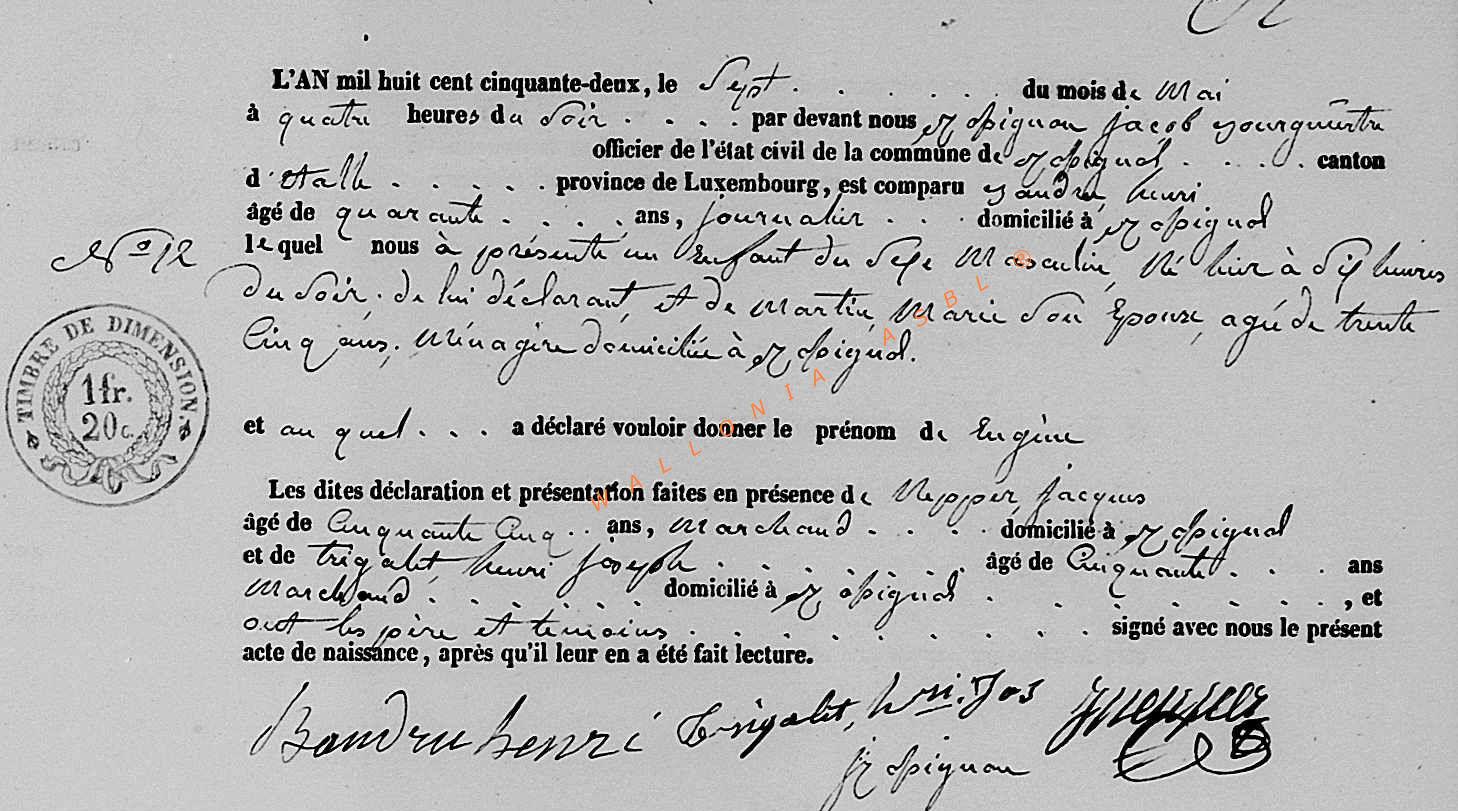 L'AN mil huit cent cinquante-deux, le Sept . . . . . . du mois de Mai
à quatre heures du Soir . . . . par devant nous, Jacob Bourguemêstre
officier de l'état civil de la commune de . . . . canton
d'Etalle . . . . . province de Luxembourg, est comparu Baudru, henri,
âgé de quarante . . . . ans, journalier . . . domicilié à
le quel nous à présenté un Enfant du Sexe Masculin, Né hier à Six heures
Nº 12
du Soir. de lui déclarant, et de Martin, Marie Son Epouse, agée de trente
Cinq ans, Ménagère domiciliée à
TIMBRE DE DIMENSION.
1 fr.
20 c.
et au quel . . . a déclaré vouloir donner le prénom de Eugène
Les dites déclaration et présentation faites en présence de Jacques
âgé de Cinquante Cinq . . ans, Marchand . . . . domicilié à
et de trigalet, henri Joseph . . . . . . . âgé de Cinquante . . . ans
Marchand . . . . . . domicilié à . . . . . . . . , et
ont les père et témoins . . . . . . . . . . signé avec nous le présent
acte de naissance, après qu'il leur en a été fait lecture.
Baudru henri Trigalet, hri. Jos
WALLONIA ASBL ©